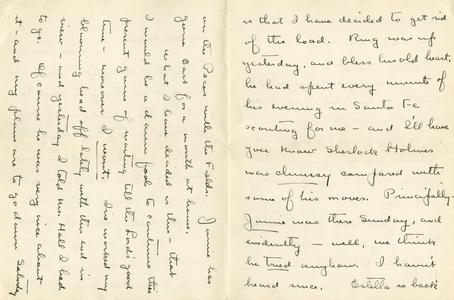 is that I have decided to get rid
of the load. Ring was up
yesterday, and bless his old heart,
he had spent every minute of
his evening in Santa Fe
scouting for me - and I'll have
you know Sherlock Holmes
was clumsy compared with
some of his moves. Principally -
Jamie was there Sunday, and
evidently - well, we think
he tried anyhow. I haven't
heard since. Estella is back
on the Pecos under the Fields. Jamie has
gone East for a month at home.
What I have decided is this - that
I would be a damn fool to continue this
present game of waiting till the Lord's good
time - moreover I won't. I've worked my
blooming head off lately with the end in
view - and yesterday I told Mr. Hall I had
to go. Of course he was very nice about
it - and my plans are to go down Saturday